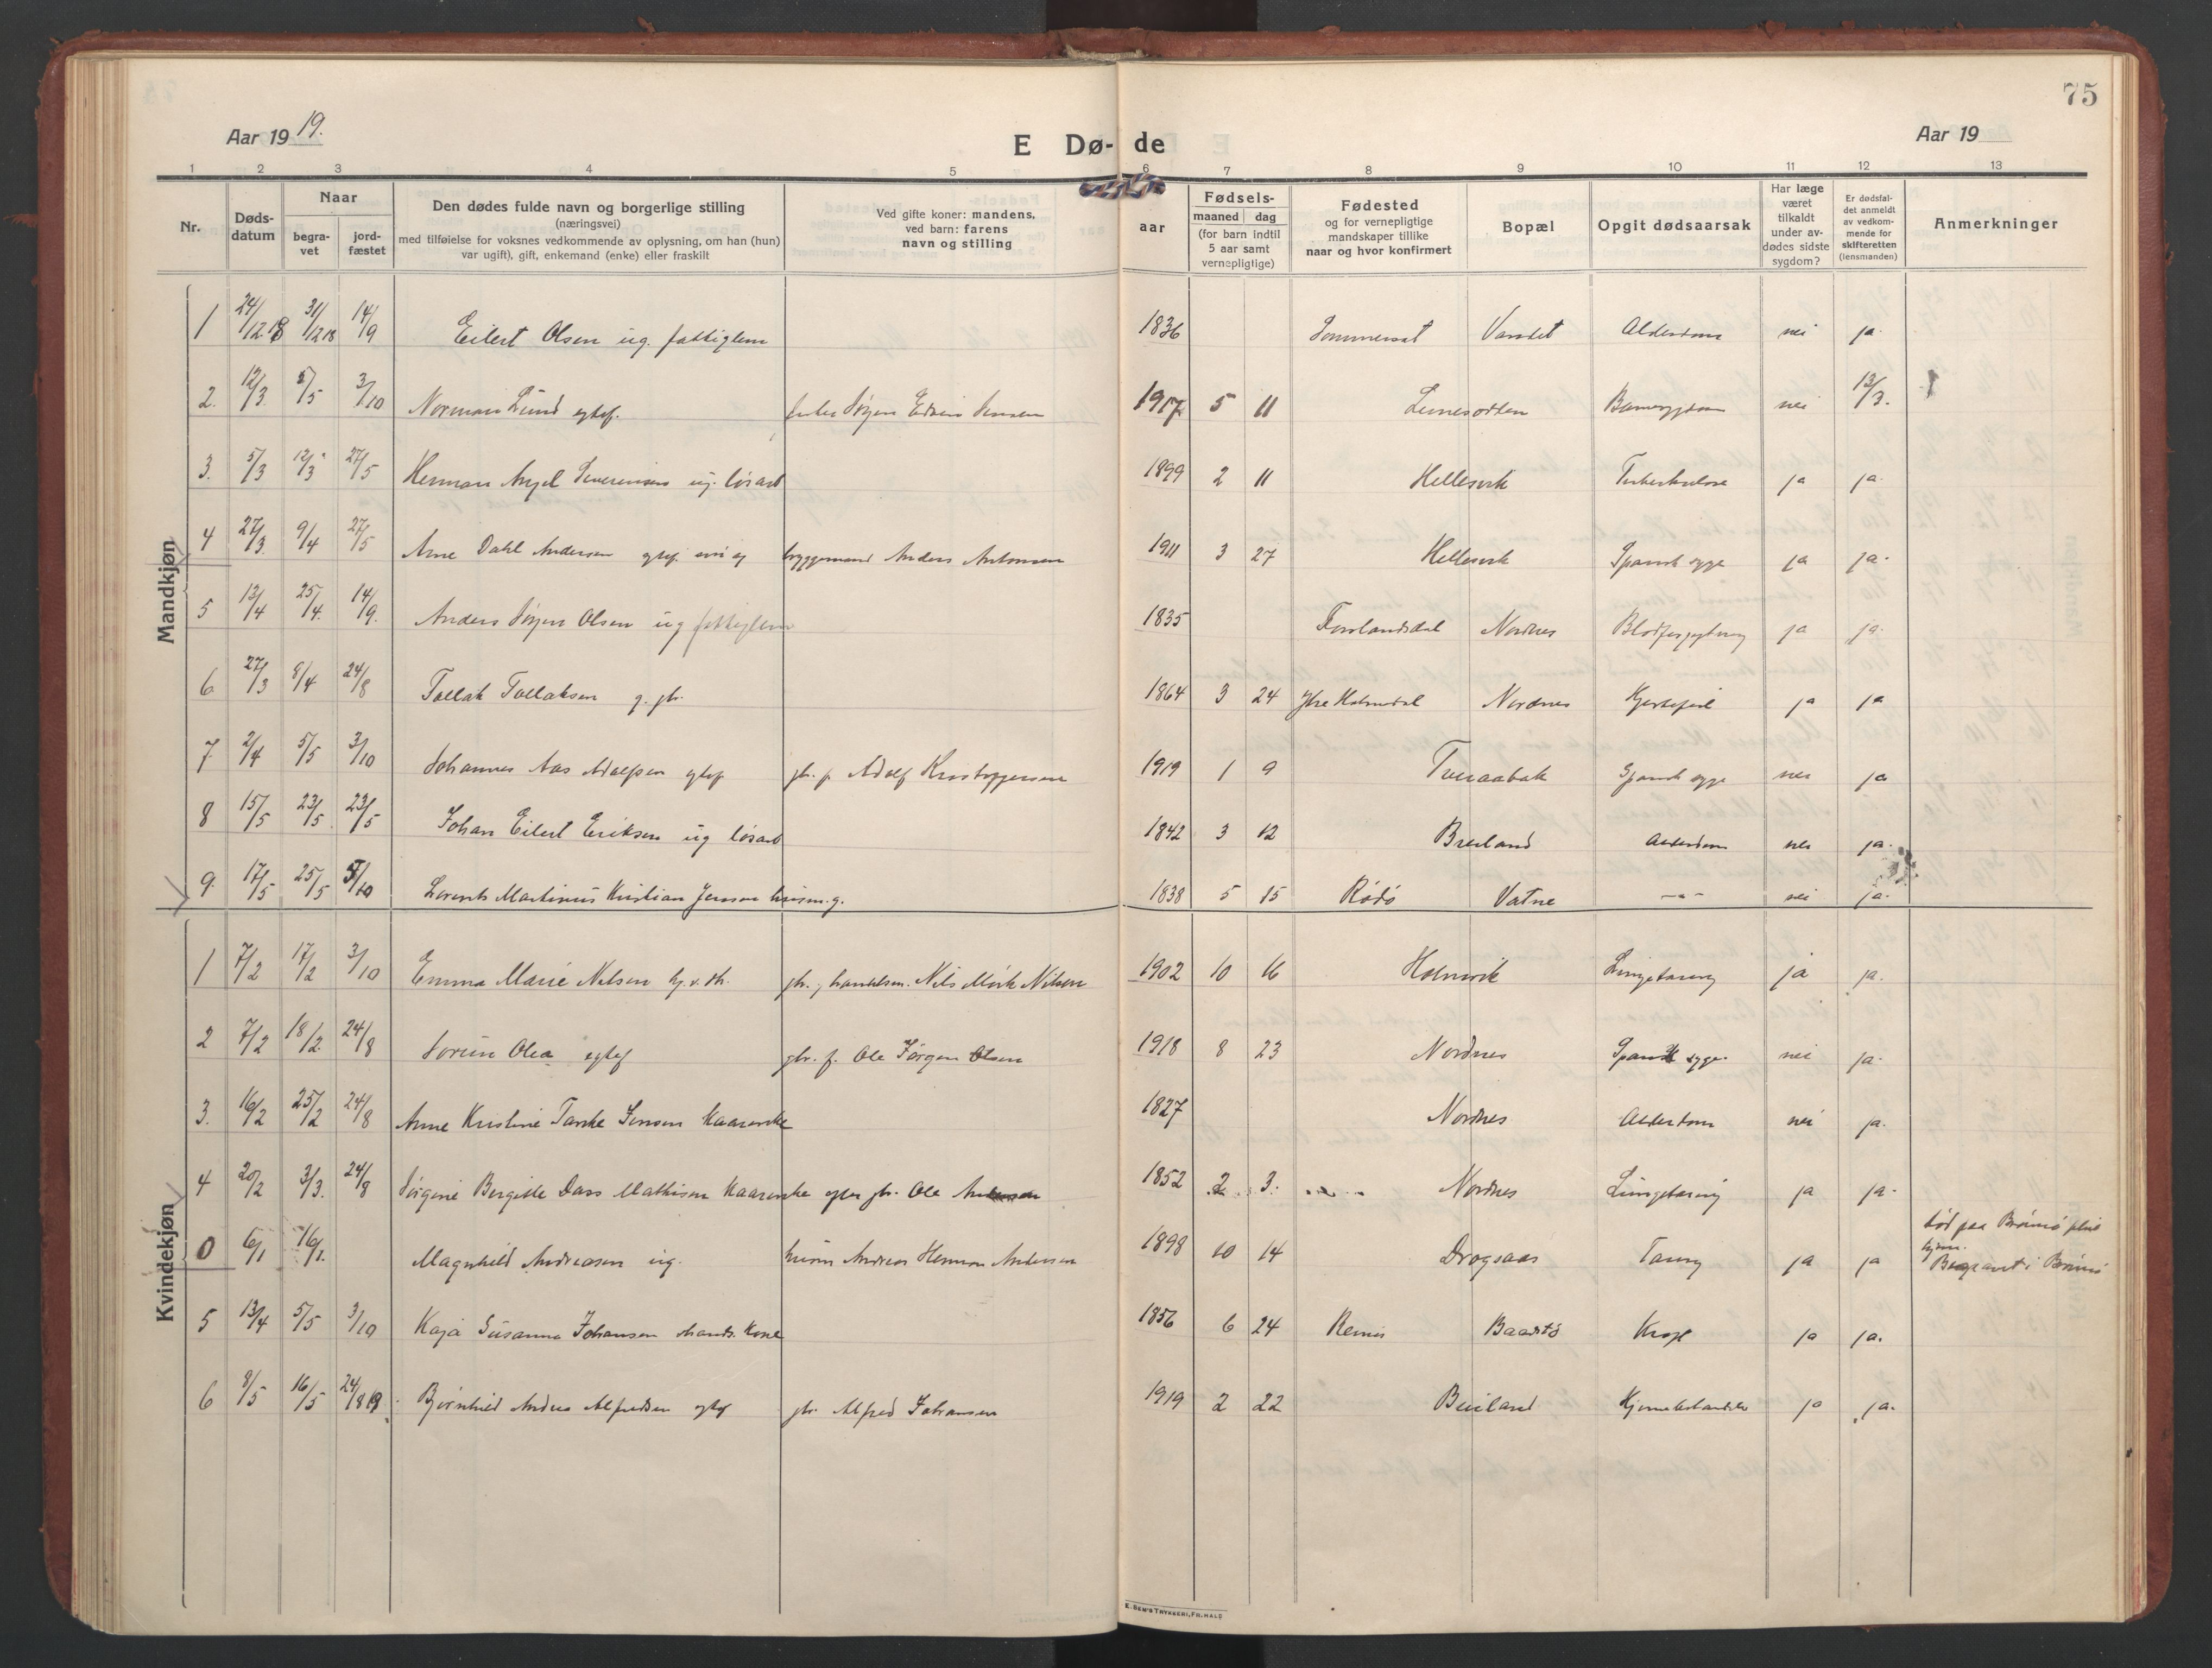 75
Aar 1919.
E Dø-de
Aar 19
1 2 3 4 5 6 7 8 9 10 11 12 13
Nr.
Døds-
datum
Naar
begra-
vet
jord-
fæstet
Den dødes fulde navn og borgerlige stilling
(næringsvei)
med tilføielse for voksnes vedkommende av oplysning, om han (hun)
var ugift), gift, enkemand (enke) eller fraskilt
Ved gifte koner: mandens,
ved barn: farens
navn og stilling
Fødsels-
aar
maaned dag
(for barn indtil
5 aar samt
vernepligtige)
Fødested
og for vernepligtige
mandskaper tillike
naar og hvor konfirmert
Bopæl
Opgit dødsaarsak
Har læge
været
tilkaldt
under av-
dødes sidste
sygdom?
Er dødsfal-
det anmeldt
av vedkom-
mende for
skifteretten
(lensmanden)
Anmerkninger
Mandkjøn
1 24/12 18 31/12 18 14/9 Eilert Olsen ug. fattiglem 1836 Sommerset Vandet Alderdom nei ja.
2. 12/3. 5/5 3/10 Norman Lund egtef. Jørgen Edvin Jensen 1917 5 11 Barnesygdom nei 13/3.
3. 5/3 12/3 27/5 Herman Angel Severinsen ug. løsarb 1899 2 11 Hellesvik Tuberkulose ja ja.
4 27/3. 9/4 27/5 Arne Dahl Andersen egtef. byggemand Anders Antonsen 1911 3 27 Hellesvik Spansk syge ja ja.
5 13/4 25/4. 14/9. Anders Jørgen Olsen ug fattiglem 1835 Forslandsdal Nordnes Blodforgiftning ja ja.
6. 27/3 8/4 24/8 Tollak Tollaksen g. gbr. 1864 3 24 Ytre Holmdal Nordnes Hjertefeil ja ja
7 2/4 5/5 3/10 Johannes Aas Adolfsen egtef gbr. f. Adolf Kristoffersen 1919 1 9 Tveraabak Spansk syge nei ja
8 15/5 23/5. 23/5 Johan Eilert Eriksen ug løsarb 1842 3 12 Breiland Alderdom nei ja.
9. 17/5 25/5 5/10 Lorents Martinus Kristian Jenson husm. g. 1838 5 15 Rødø Vatne -"- nei ja.
Kvindekjøn
1 7/2 17/2 3/10 Emma Marie Nilsen gbr., handelsm. Nils Mørk Nilsen 1902 10 16 Holmvik Lungetæring ja ja.
2 7/2 18/2. 24/8 Jorun Olea egtef gbr. f. Ole Jørgen Olsen 1918 8 23 Nordnes Spansk syge. nei ja.
3. 16/2 25/2 24/8 Anne Kristine Tanke Jensen kaarenke 1827 Nordnes Alderdom nei ja.
4 20/2 3/3. 24/8 Jørgine Bergitte Dass Mathisen kaarenke efter gbr. Ole Andersen 1852 2 3. Nordnes Lungetæring ja ja.
0 6/1 16/1. Magnhild Andreasen ug. husm Andreas Herman Andersen 1898 10 14 Drogsaas Tæring ja ja Død paa Brønnø pleie
hjem.
Begravet i Brønnø
5 13/4 5/5 3/10 Kaja Susanna Johansen hands. kone 1856 6 24 Remis Baadstø ja ja.
6 8/5 16/5 24/8 19. Bjørnhild Andrea Alfredsen egtef gbr. Alfred Johansen 1919 2 22 Breiland Hjernebetændelse ja ja.
E. SEM'S TRYKKERI, FR.HALD